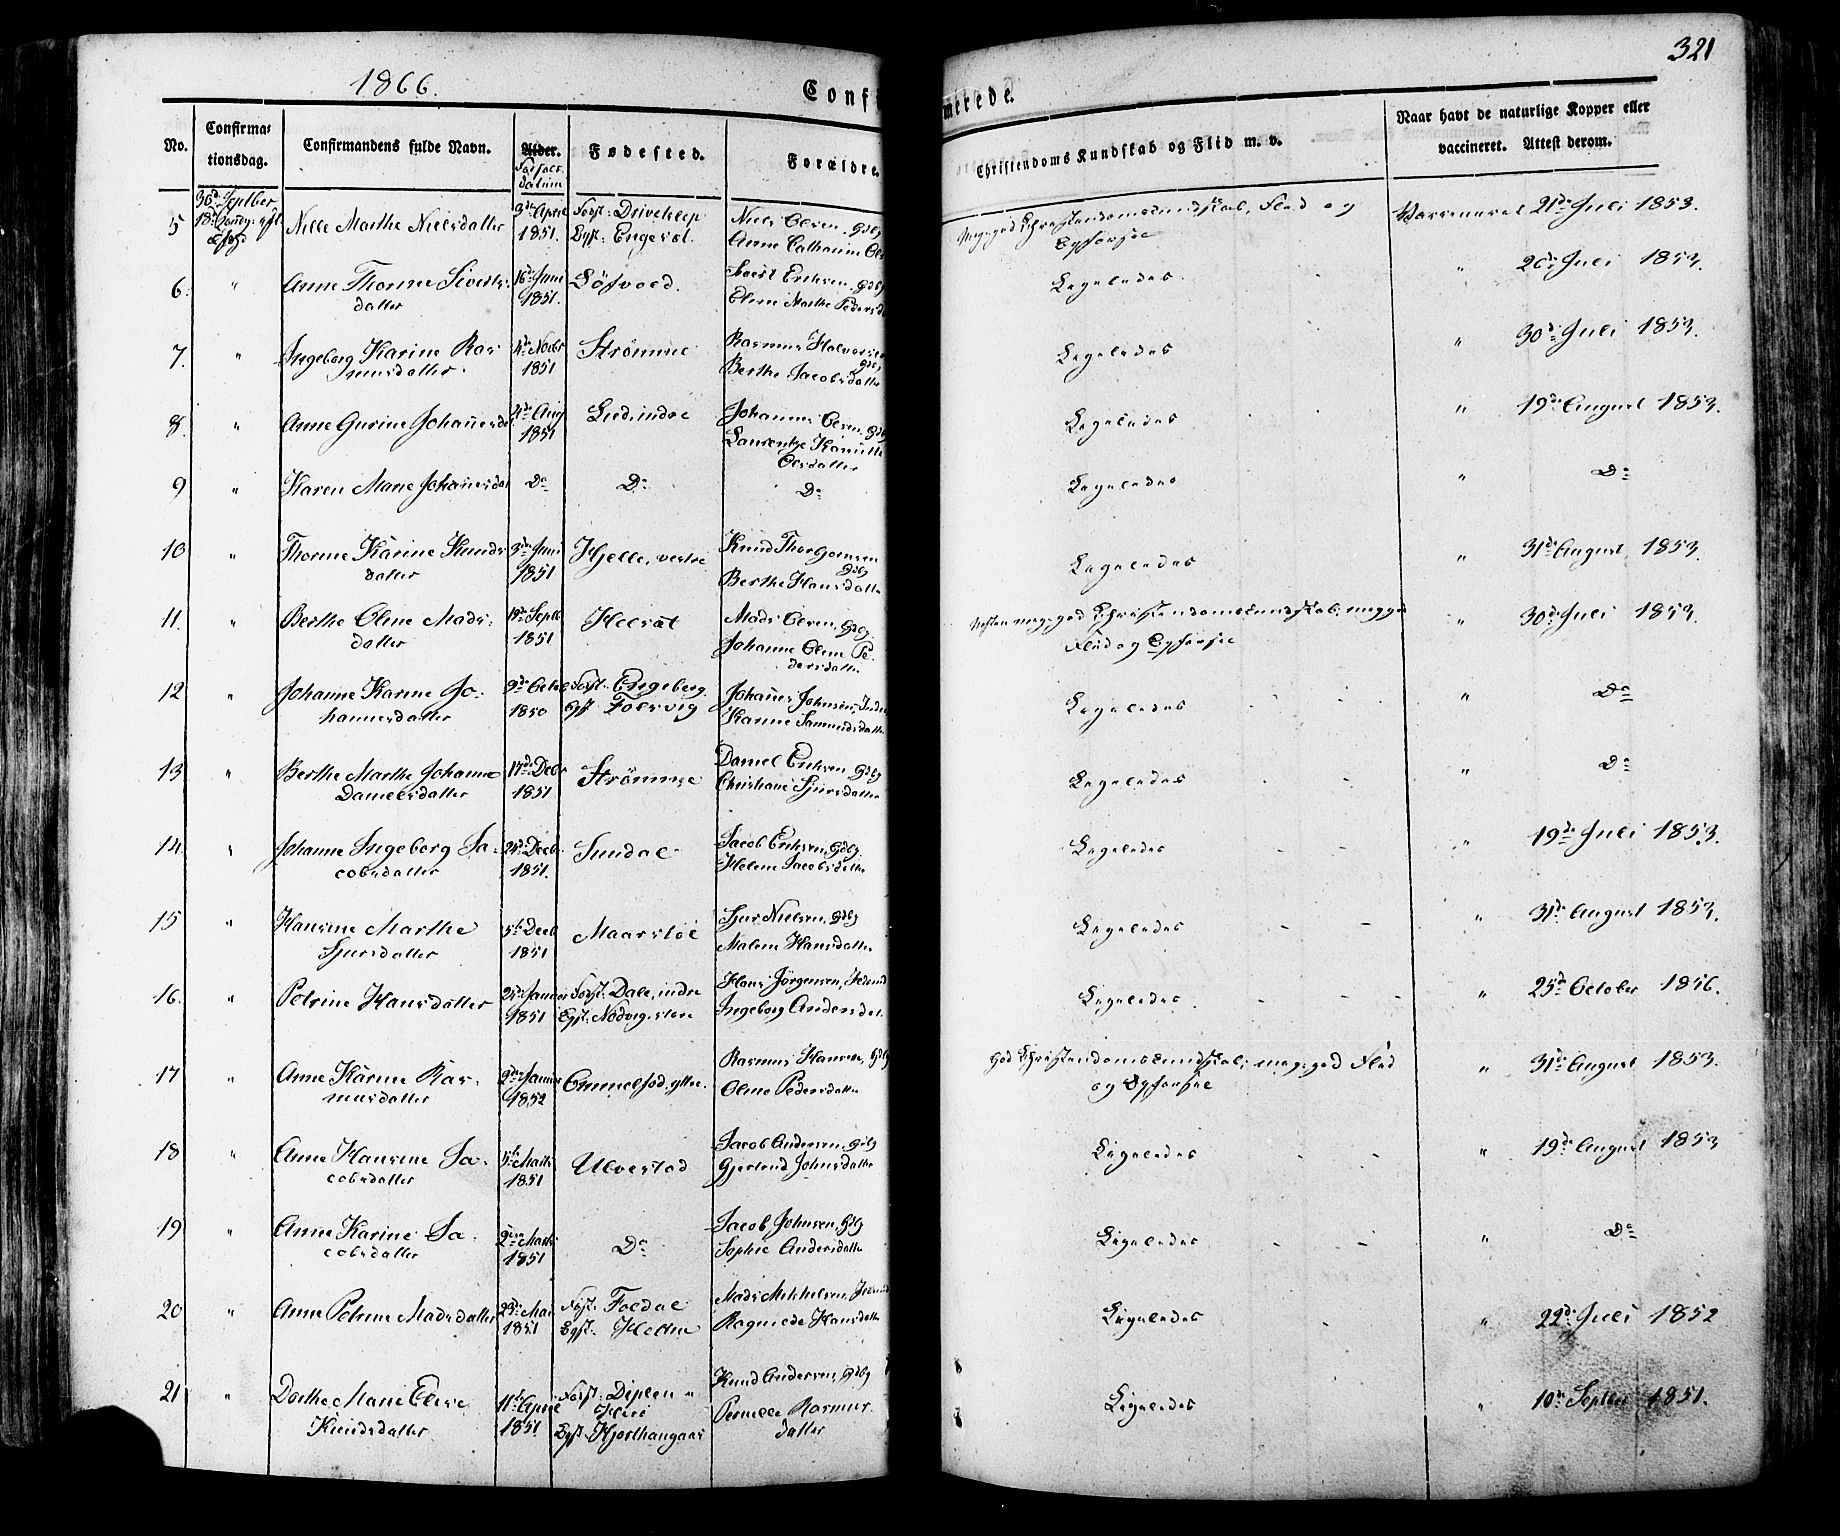 321
1866.
Confi
merede.
No.
Confirma-
tionsdag.
Confirmandens fulde Navn.
Alder.
datum
Fødested.
Forældre.
Christendoms Kundskab og Flid m. v.
Naar havt de naturlige Kopper eller
vaccineret. Attest derom.
5
30d Septber
Nille Marthe Nielsdatter
3die April
1851.
Fødst: Driveklep
Niels Olsen, Gdbg
Anne Cathrine Ols
meg. god Christendomskundskab, Flid og
Opførsel
21de Juli 1853.
6.
"
Anne Thorine Siverts-
datter
16de Juni
1851.
Løfvold.
Sivert Eriksen, Gdbg
Oline Marthe Pedersd
Ligeledes
"
26de Juli 1853.
7.
"
Ingeborg Karine Ras
musdatter.
4de Novbr
1851
Strömme
Rasmus Halvorsen
Gdbg
Berthe Jacobsdatter
Ligeledes
"
30d Juli 1853.
8.
"
Anne Gurine Johannesd
4de Aug
1851
Johannes Olsen, Gdbg
Olsdatter
Ligeledes
"
19de August 1853.
9
"
Karen Marie Johannesdat
Do
Do
Do
Ligeledes
"
Do
10
"
Thorine Karine Knuds
datter
3die Juni
1851
Hjelle, vestre
Knud Thorgersen
Gdbg
Berthe Hansdatter
Ligeledes
"
31de August 1853.
11.
"
Berthe Oline Mads-
datter
19de Septb
1851
Mads Olsen, Gdbg.
Johanne Oline Pe-
dersdatter
Næsten meg. god Christendomskundskab; meg. god
Flid og Opførsel
"
30de Juli 1853.
12
"
Johanne Karine Jo-
hannesdatter
9de Octob
1850
Fødst: Engeberg.
Johannes Johnsen,
Karine Samundsdatter
Ligeledes
"
Do
13
"
Berthe Marthe Johanne
Danielsdatter
17de Decbr
1851
Strömme
Daniel Eriksen, Gdbg
Christiane Sjursdatter
Ligeledes
"
Do
14.
"
Johanne Ingeborg Ja-
cobsdatter
24de Decbr
1851.
Sundal
Jacob Eriksen, Gdbg
Helene Jacobsdatter
Ligeledes
"
19de Juli 1853.
15
"
Hansine Marthe
Sjursdatter
5te Decb
1851
Maarstöl
Sjur Nielsen, Gdbg
Malene Hansdatter
Ligeledes
"
31de August 1853.
16.
"
Petrine Hansdatter
1851
Fødst: Dale, indre
Hans Jörgensen,
Ingeborg Andersdat.
Ligeledes
"
25de October 1856.
17
"
Anne Karine Ras-
musdatter
2den Januar
1852
Rasmus Hansen, Gdbg
Oline Pedersdatter
God Christendomskundskab; meg. god Flid
og Opførsel
"
31de August 1853.
18
"
Anne Hansine Ja-
cobsdatter
5te Marts
1851
Ulvestad
Jacob Andersen, Gdbg
Gjertrud Johnsdatter
Ligeledes
"
19de August 1853
19
"
Anne Karine Ja-
cobsdatter
2den Marts
1851
Do
Jacob Johnsen, Gdbg
Sophie Andersdatter
Ligeledes
"
Do
20
"
Anne Petrine Madsdatter
23de Mai
1851
Fødst: Foldal
Mads Mikkelsen,
Ragnilde Hansdatter
Ligeledes
"
22de Juli 1852
21
"
Dorthe Marie Elise
Knudsdatter
11te April
1851
Fødst: Diplen
Herö
Knud Andersen, Gdbg
Pernille Rasmus
datter
Ligeledes
"
10de Septber 1851.